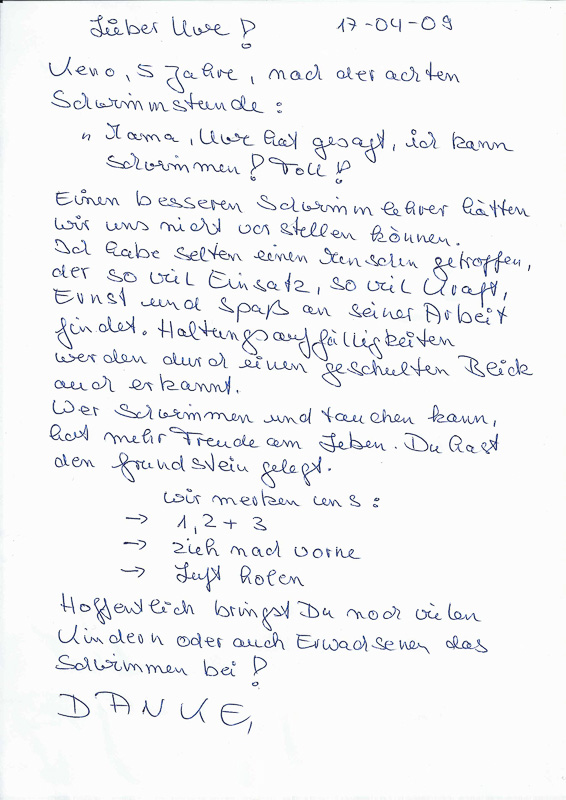 Lieber Uwe! 17-04-09
Keno, 5 Jahre, nach der achten
Schwimmstunde:
"Mama, Uwe hat gesagt, ich kann
schwimmen! Toll!
Einen besseren Schwimmlehrer hätten
wir uns nicht vorstellen können.
Ich habe selten einen Menschen getroffen,
der so viel Einsatz, so viel Kraft,
Ernst und Spaß an seiner Arbeit
findet. Haltungsauffälligkeiten
werden durch einen geschulten Blick
auch erkannt.
Wer schwimmen und tauchen kann,
hat mehr Freude am Leben. Du hast
den Grundstein gelegt.
Wir merken uns:
→ 1, 2 + 3
→ zieh nach vorne
→ Luft holen
Hoffentlich bringst Du noch vielen
Kindern oder auch Erwachsenen das
Schwimmen bei!
DANKE,